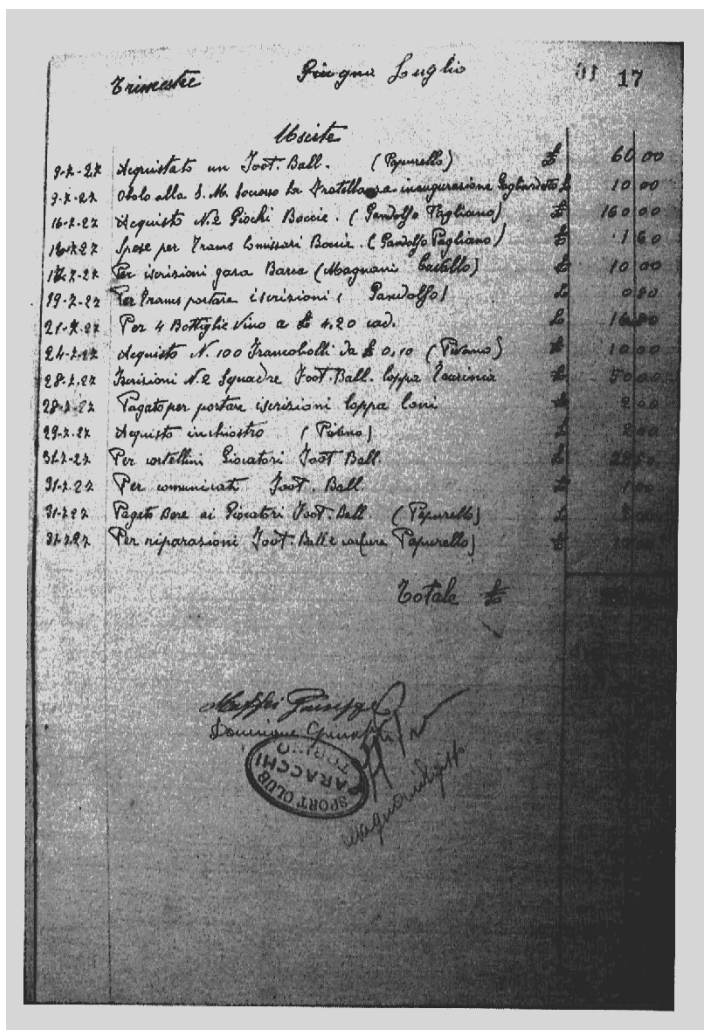 Trimestre Giugno Luglio 17
Uscite
9-7-27 Acquistato un Foot-Ball. (Papurello) £ 60 00
9-7-27 Obolo alla S. M. Soccorso La Fratellanza inaugurazione Gagliardetto £ 10 00
16-7-27 Acquisto N.2 Giochi Boccie. (Gandolfo Pagliano) £ 160 00
16-7-27 Spese per Trams Comissari Boccie. (Gandolfo Pagliano) £ 1 60
17-7-27 Per iscrizioni gara Barca (Magnani Castello) £ 10 00
19-7-27 Per Trams portare iscrizioni (Gandolfo) £ 0 80
21-7-27 Per 4 Bottiglie Vino a £ 4,20 cad. £ 16 80
24-7-27 Acquisto N. 100 Francobolli da £ 0,10 (Pivano) £ 10 00
28-7-27 Iscrizioni N.2 Squadre Foot Ball. Coppa Taurinia £ 50 00
28-7-27 Pagato per portare iscrizioni Coppa Coni £ 2 00
29-7-27 Acquisto inchiostro (Pivano) £ 2 00
31-7-27 Per cartellini Giocatori Foot Ball. £
31-7-27 Per comunicati Foot. Ball. £ 1 00
31-7-27 Pagato Bere ai Giocatori Foot-Ball (Papurello) £
31-7-27 Per riparazioni Foot-Ball e (Papurello) £
Totale £
Maffei Giuseppe
Giuseppe
SPORT CLUB
PARACCHI
TORINO